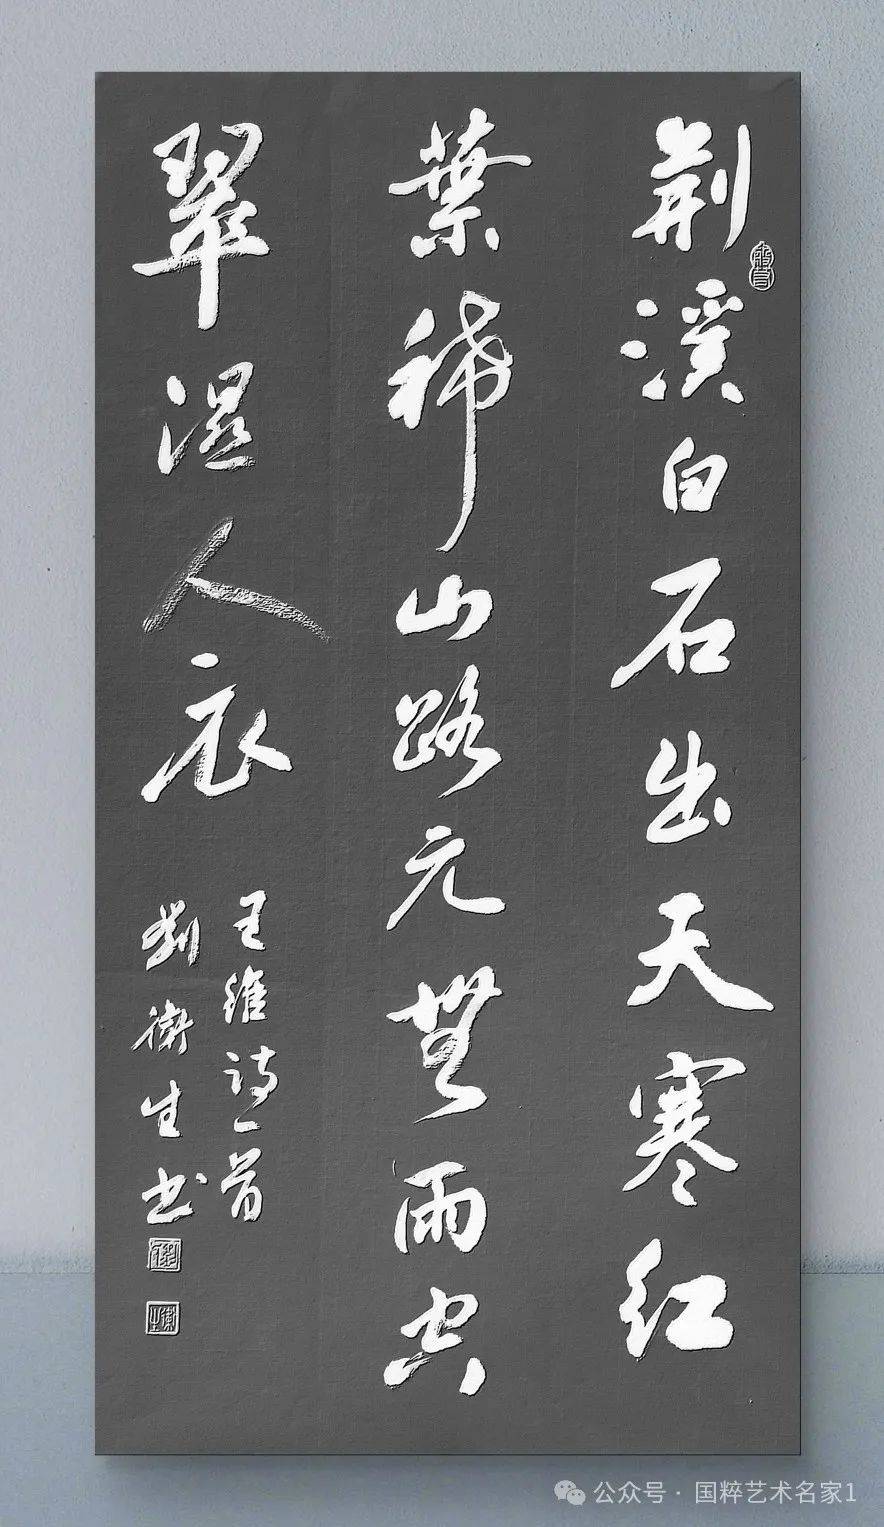 荆溪白石出天寒红
葉稀山路元無雨空
翠湿人衣
王維诗一首
劉衛生书
公众号 · 国粹艺术名家1